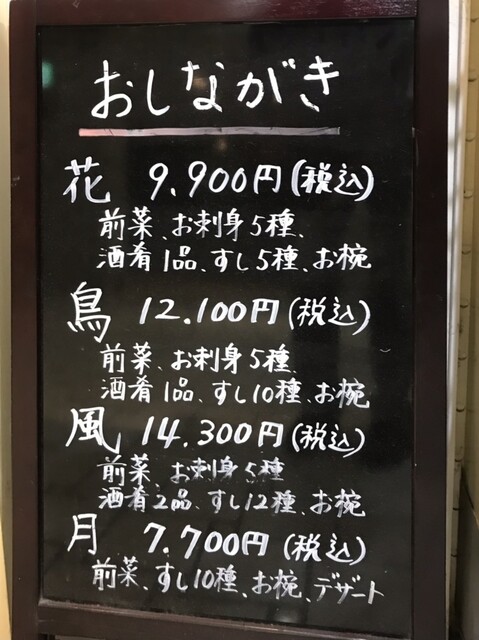 おしながき
花 9.900円(税込)
前菜、お刺身5種、
酒肴1品、すし5種、お椀
鳥 12.100円(税込)
前菜、お刺身5種、
酒肴1品、すし10種、お椀
風 14.300円(税込)
前菜、お刺身5種
酒肴2品、すし12種、お椀
月 7.700円(税込)
前菜、すし10種、お椀、デザート